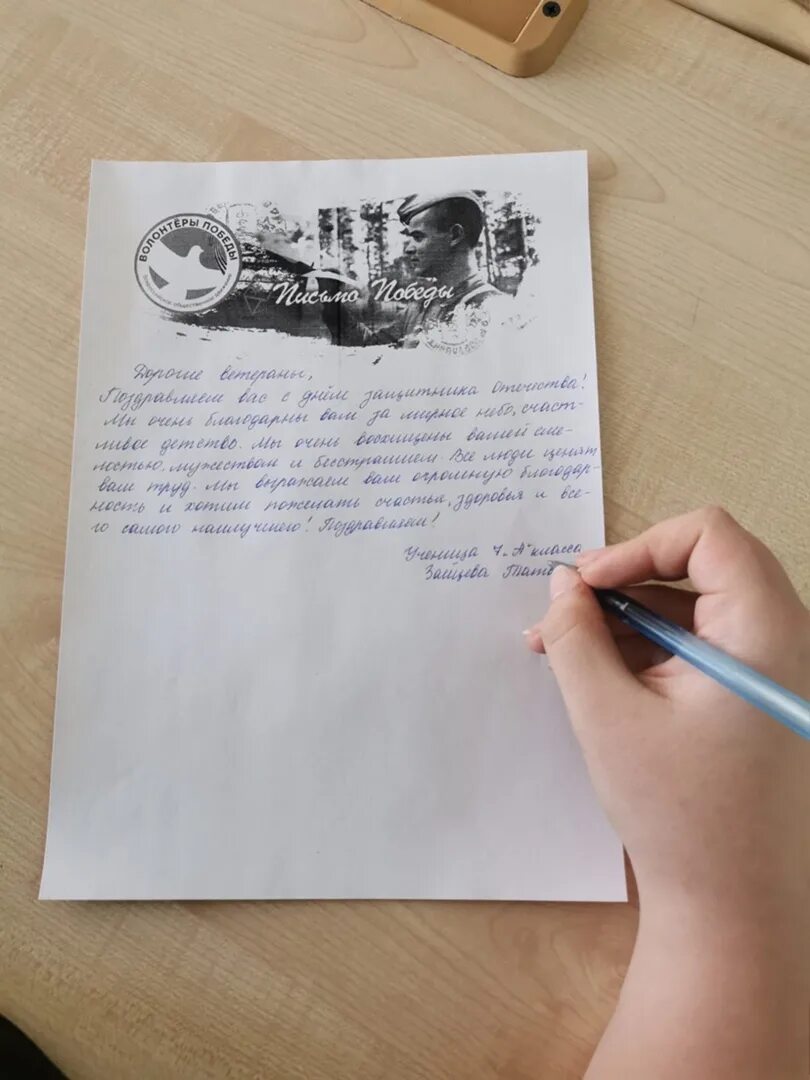 ВОЛОНТЁРЫ ПОБЕДЫ
Письмо Победы
Дорогие ветераны,
Поздравляем вас с днём защитника Отечества!
Мы очень благодарны вам за мирное небо, счаст-
ливое детство. Мы очень восхищены вашей сме-
лостью, мужеством и бесстрашием. Все люди ценят
ваш труд. Мы выражаем вам огромную благодар-
ность и хотим пожелать счастья, здоровья и все-
го самого наилучшего! Поздравляем!
Ученица 7 "А" класса
Зайцева